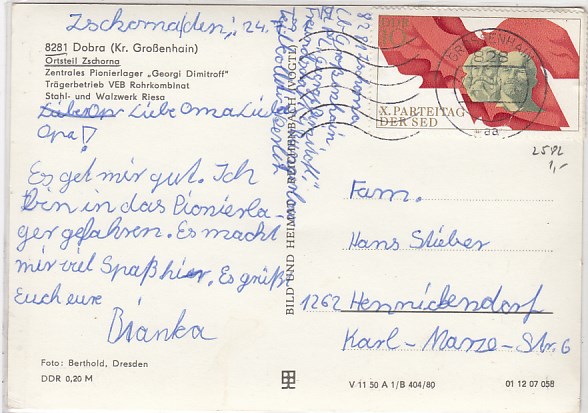 Zschorna, den 24.
8281 Dobra (Kr. Großenhain)
Ortsteil Zschorna
Zentrales Pionierlager „Georgi Dimitroff"
Trägerbetrieb VEB Rohrkombinat
Stahl- und Walzwerk Riesa
Liebe Oma Lieber
Opa!
Es get mir gut. Ich
bin in das Pionierla-
ger gefahren. Es macht
mir viel Spaß hier. Es grüß
Euch eure
Bianka
Foto: Berthold, Dresden
DDR 0,20 M
8281 Zschorna
Kr. Großenhain
BILD UND HEIMAT REICHENBACH (VOGTL)
DDR
10
X. PARTEITAG
DER SED
GROSSENHAIN
828
2582
1,-
Fam.
Hans Stieber
1262 Hennickendorf
Karl-Marx-Str. 6
V 11 50 A 1/B 404/80
01 12 07 058